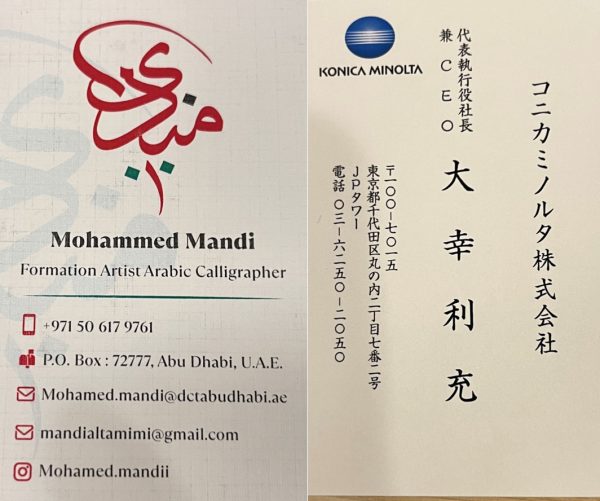 مندي
Mohammed Mandi
Formation Artist Arabic Calligrapher
+971 50 617 9761
P.O. Box : 72777, Abu Dhabi, U.A.E.
Mohamed.mandi@dctabudhabi.ae
mandialtamimi@gmail.com
Mohamed.mandii
KONICA MINOLTA
コニカミノルタ株式会社
代表執行役社長
兼CEO
大幸利充
〒一〇〇-七〇一五
東京都千代田区丸の内二丁目七番二号
JPタワー
電話 〇三-六二五〇-二〇五〇